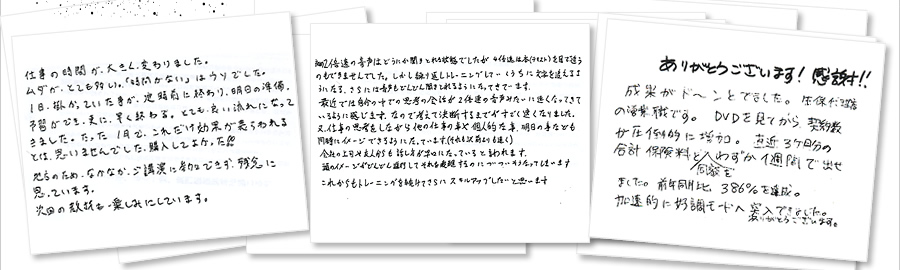 仕事の時間が、大きく変わりました。
ムダが、とても多い。「時間がない」はウソでした。
1日、掛かっていた事が、定時前に終わり、明日の準備、
予習ができ、更に、早く終わる。とても、良い流れになって
きました。たった1日で、これだけ効果が表われる
とは、思いませんでした。購入してよかった!!
地方のため、なかなか、ご講演に参加できず、残念に
思っています。
次回の教材も楽しみにしています。
2倍速の音声はどうにか聞きとれる状態でしたが 4倍速は本(テキスト)を目で追う
のもできませんでした。しかし繰り返しトレーニングしていくうちに文字を追えるよ
うになり、さらには音声もどんどん聞きとれるようになってきています。
最近では自分の中での思考の会話が2倍速の音声みたいに速くなってきて
いるように感じます。なので考えて決断するまでがすごく速くなりました。
又、仕事の思考をしながら他の仕事の事や個人的な事、明日の事なども
同時にイメージできるようになっています。(それも以前より速く)
会社の上司や友人からも話し方が早口になっていると言われます。
頭のイメージがどんどん進行してそれを処理するのについついそうなってしまいます
これからもトレーニングを続けてさらにスキルアップしたいと思います
ありがとうございます!感謝!!
成果がド〜ンとでました。生保
の営業職です。DVDを見てから、契約数
が圧倒的に増加。直近3ヶ月分の
合計保険料と同額をわずか1週間で出せ
ました。前年同月比、386%を達成。
加速的に好調モードへ突入できました。
ありがとうございます。